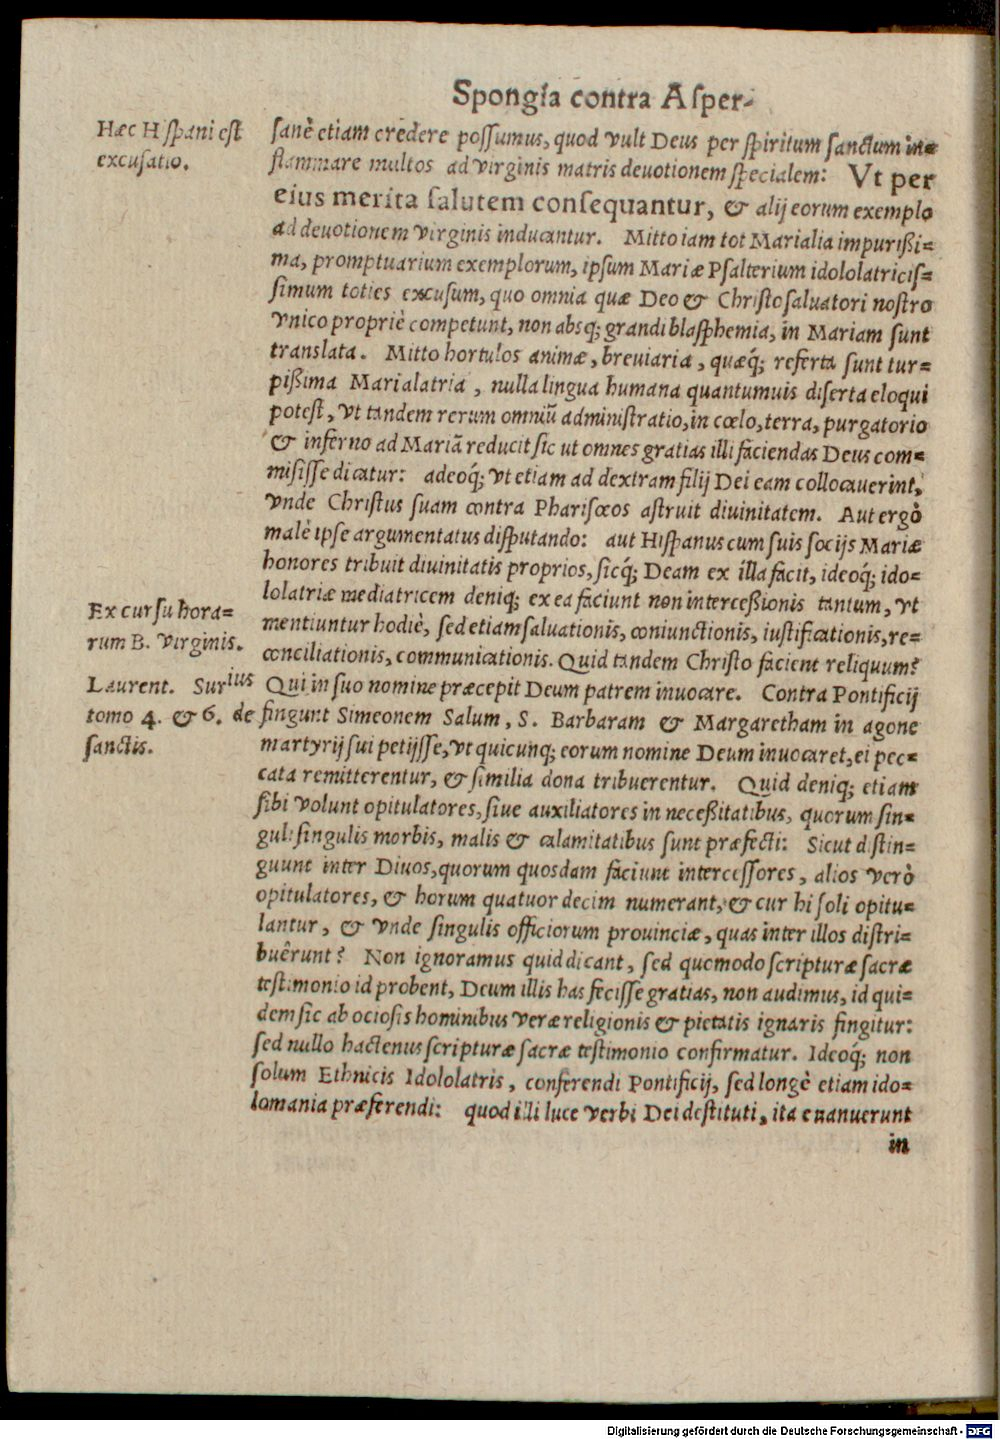 Spongia contra Asper-
Hæc Hispani est
excusatio.
sanè etiam credere possumus, quod vult Deus per spiritum sanctum in=
flammare multos ad virginis matris deuotionem specialem: Vt per
eius merita salutem consequantur, & alij eorum exemplo
ad deuotionem virginis inducantur. Mitto iam tot Marialia impurißi=
ma, promptuarium exemplorum, ipsum Mariæ Psalterium idololatricis=
simum toties excusum, quo omnia quæ Deo & Christo saluatori nostro
vnico propriè competunt, non absq; grandi blasphemia, in Mariam sunt
translata. Mitto hortulos animæ, breviaria, quæq́; referta sunt tur=
pißima Marialatria, nulla lingua humana quantumuis diserta eloqui
potest, vt tandem rerum omniũ administratio, in cœlo, terra, purgatorio
& inferno ad Mariã reducit sic ut omnes gratias illi faciendas Deus com=
misisse dicatur: adeoq́; vt etiam ad dextram filij Dei eam collocauerint,
vnde Christus suam contra Pharisœos astruit diuinitatem. Aut ergò
malè ipse argumentatus disputando: aut Hispanus cum suis socijs Mariæ
honores tribuit diuinitatis proprios, sicq́; Deam ex illa facit, ideoq́; ido=
lolatriæ mediatricem deniq; ex ea faciunt non interceßionis tantum, vt
mentiuntur hodiè, sed etiam saluationis, coniunctionis, iustificationis, re=
conciliationis, communicationis. Quid tandem Christo facient reliquum?
Ex cursu hora=
rum B. Virginis.
Qui in suo nomine præcepit Deum patrem inuocare. Contra Pontificij
fingunt Simeonem Salum, S. Barbaram & Margaretham in agone
martyrij sui petijsse, vt quicunq; eorum nomine Deum inuocaret, ei pec=
cata remitterentur, & similia dona tribuerentur. Quid deniq; etiam
Laurent. Surius
tomo 4. & 6. de
sanctis.
sibi volunt opitulatores, siue auxiliatores in neceßitatibus, quorum sin=
guli singulis morbis, malis & calamitatibus sunt præfecti: Sicut distin=
guunt inter Diuos, quorum quosdam faciunt intercessores, alios verò
opitulatores, & horum quatuordecim numerant, & cur hi soli opitu=
lantur, & vnde singulis officiorum prouinciæ, quas inter illos distri=
buêrunt? Non ignoramus quid dicant, sed quomodo scripturæ sacræ
testimonio id probent, Deum illis has fecisse gratias, non audimus, id qui=
dem sic ab ociosis hominibus veræ religionis & pietatis ignaris fingitur:
sed nullo hactenus scripturæ sacræ testimonio confirmatur. Ideoq́; non
solum Ethnicis Idololatris, conferendi Pontificij, sed longè etiam ido=
lomania præferendi: quod illi luce verbi Dei destituti, ita euanuerunt
in
Digitalisierung gefördert durch die Deutsche Forschungsgemeinschaft - DFG